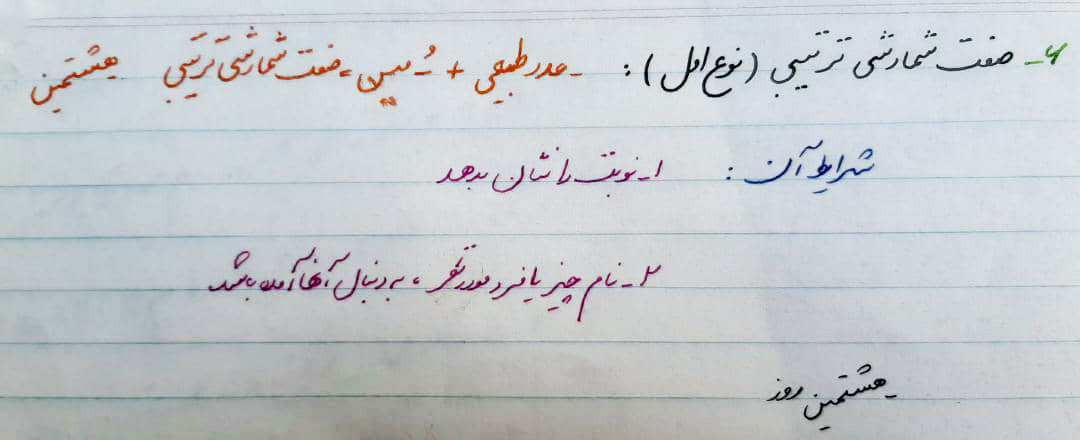 ۶- صفت شمارشی ترتیبی (نوع اول) : - عدد طبیعی + ـُ مین = صفت شمارشی ترتیبی هشتمین
شرایط آن : ۱- نوبت را نشان بدهد
۲- نام چیز یا فرد مورد نظر ، به دنبال آنها آمده باشد
هشتمین روز